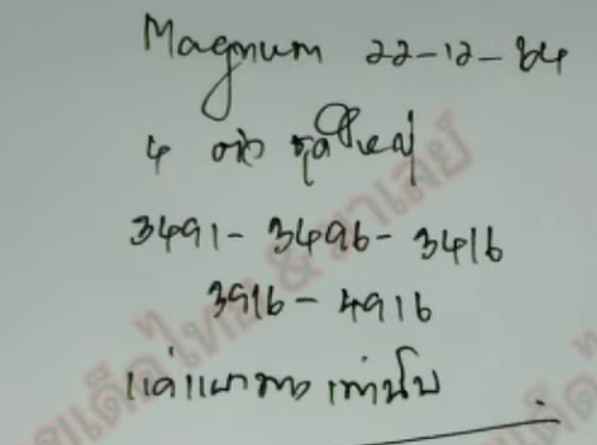 Magnum 22-12-64
4 ตัว ชุดใหญ่
3491 - 3496 - 3416
3916 - 4916
แค่แนวทาง เท่านั้น